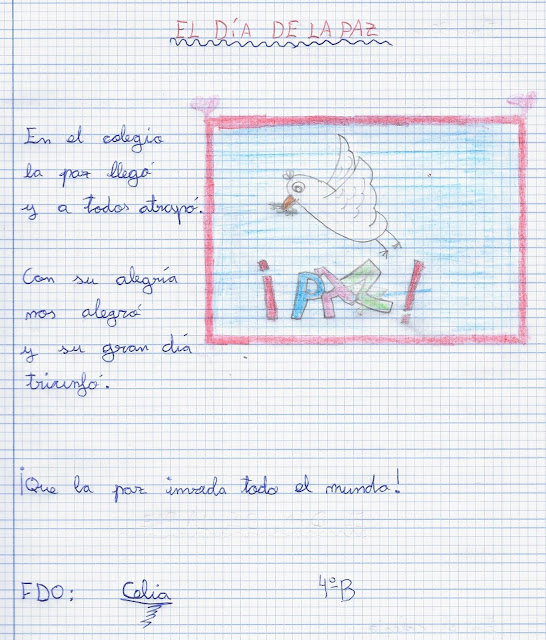 EL DÍA DE LA PAZ
En el colegio
la paz llegó
y a todos atrapó.
Con su alegría
nos alegró
y su gran día
triunfó.
¡PAZ!
¡Que la paz invada todo el mundo!
FDO: Celia 4º B